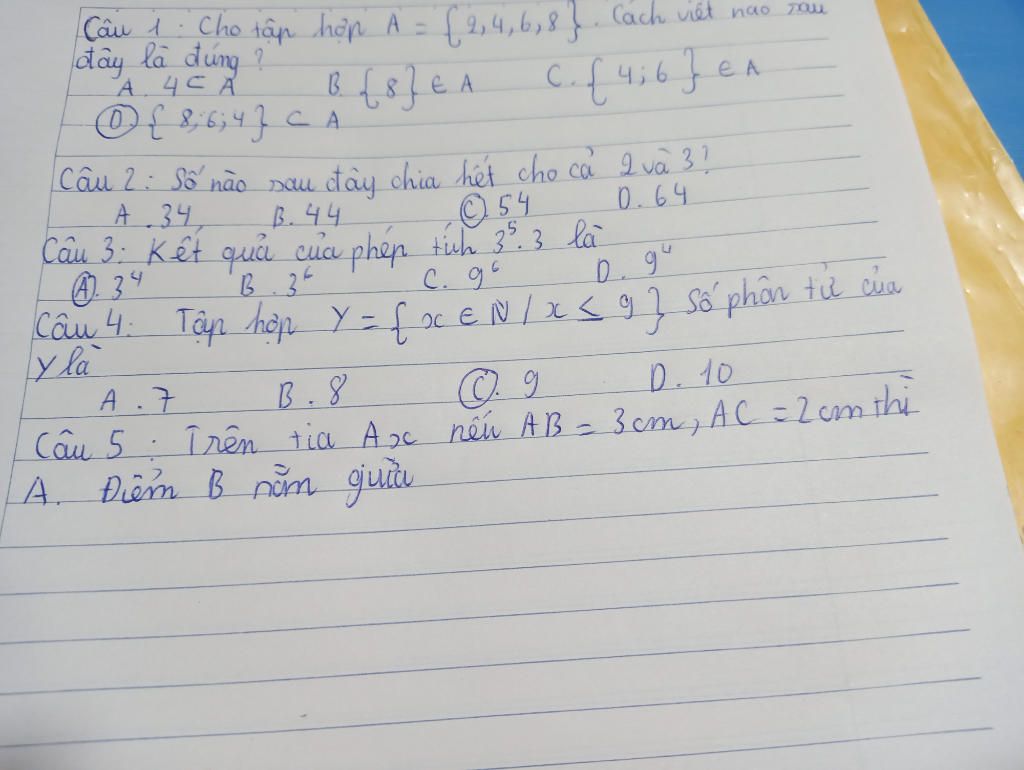 Câu 1 : Cho tập hợp A = {2,4,6,8}. Cách viết nào sau
đây là đúng ?
A. 4 ⊂ A B. {8} ∈ A C. {4;6} ∈ A
D. {8;6;4} ⊂ A
Câu 2 : Số nào sau đây chia hết cho cả 2 và 3?
A. 34 B. 44 C. 54 D. 64
Câu 3 : Kết quả của phép tính 3⁵.3 là
A. 3⁴ B. 3⁶ C. 9⁶ D. 9⁴
Câu 4 : Tập hợp Y = {x ∈ N / x ≤ 9} Số phần tử của
Y là
A. 7 B. 8 C. 9 D. 10
Câu 5 : Trên tia Ax nếu AB = 3cm, AC = 2cm thì
A. Điểm B nằm giữa